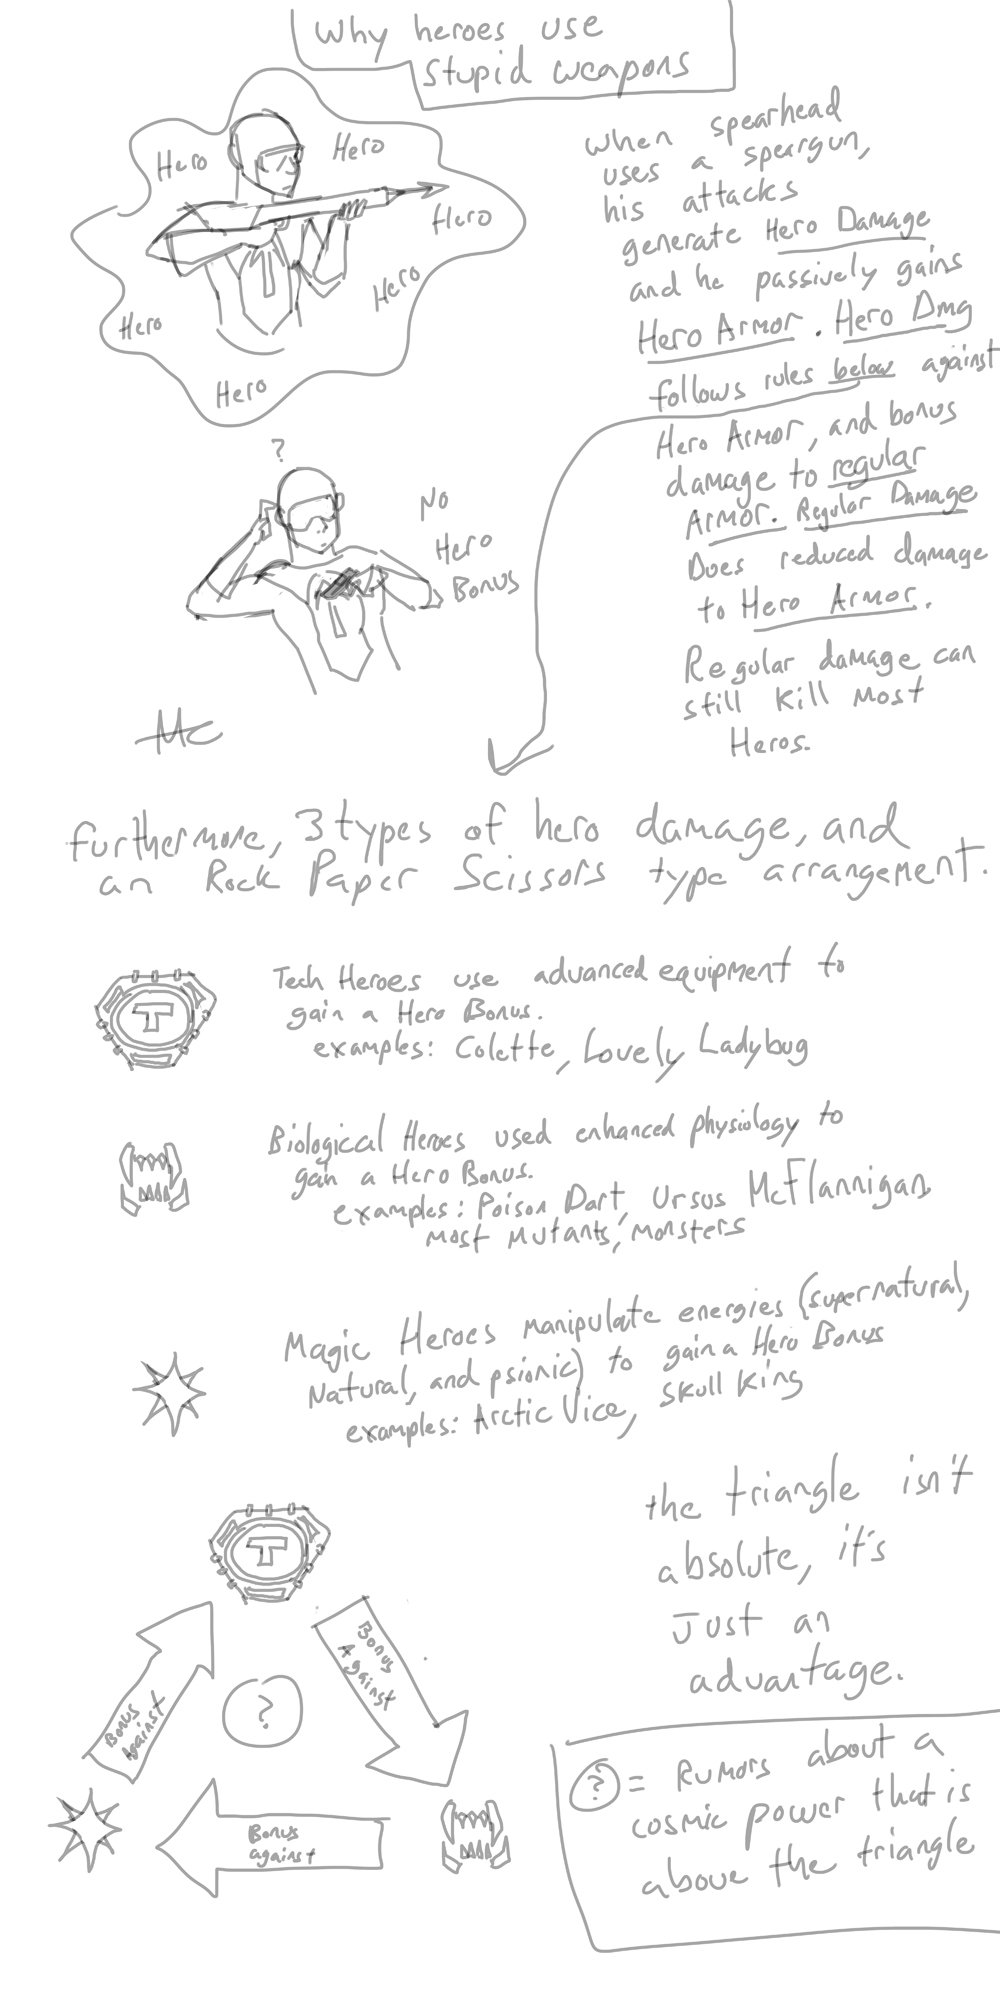 Why heroes use
Stupid weapons
Hero
Hero
Hero
Hero
Hero
Hero
when spearhead
uses a speargun,
his attacks
generate Hero Damage
and he passively gains
Hero Armor. Hero Dmg
follows rules below against
Hero Armor, and bonus
damage to regular
Armor. Regular Damage
Does reduced damage
to Hero Armor.
Regular damage can
still kill most
Heros.
?
No
Hero
Bonus
MC
furthermore, 3 types of hero damage, and
an Rock Paper Scissors type arrangement.
T
Tech Heroes use advanced equipment to
gain a Hero Bonus.
examples: Colette, Lovely Ladybug
Biological Heroes used enhanced physiology to
gain a Hero Bonus.
examples: Poison Dart, Ursus McFlannigan,
most mutants, monsters
Magic Heroes manipulate energies (supernatural,
Natural, and psionic) to gain a Hero Bonus
examples: Arctic Vice, Skull King
T
Bonus
Against
Bonus
Against
?
Bonus
against
the triangle isn't
absolute, it's
Just an
advantage.
? = Rumors about a
cosmic power that is
above the triangle